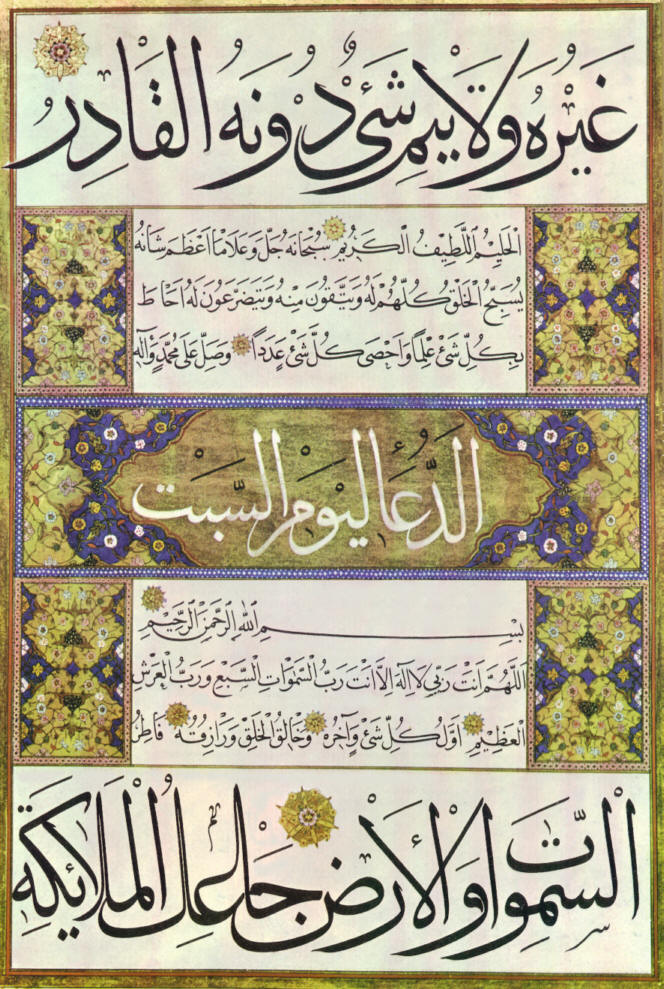 غَيْرُهُ وَلَا يَتِمُّ شَيْءٌ دُونَهُ الْقَادِرُ
الْحَلِيمُ اللَّطِيفُ الْكَرِيمُ سُبْحَانَهُ جَلَّ وَعَلَا مَا أَعْظَمَ شَأْنُهُ
يُسَبِّحُ الْخَلْقُ كُلُّهُمْ لَهُ وَيَتَّقُونَ مِنْهُ وَيَتَضَرَّعُونَ لَهُ أَحَاطَ
بِكُلِّ شَيْءٍ عِلْمًا وَأَحْصَى كُلَّ شَيْءٍ عَدَدًا وَصَلِّ عَلَى مُحَمَّدٍ وَآلِهِ
الدُّعَاءُ لِيَوْمِ السَّبْتِ
بِسْمِ اللهِ الرَّحْمَنِ الرَّحِيمِ
اَللَّهُمَّ أَنْتَ رَبِّي لَا إِلَهَ إِلَّا أَنْتَ رَبُّ السَّمَوَاتِ السَّبْعِ وَرَبُّ الْعَرْشِ
الْعَظِيمِ أَوَّلُ كُلِّ شَيْءٍ وَآخِرُهُ وَخَالِقُ الْخَلْقِ وَرَازِقُهُ فَاطِرُ
السَّمَوَاتِ وَالْأَرْضِ جَاعِلُ الْمَلَائِكَةِ